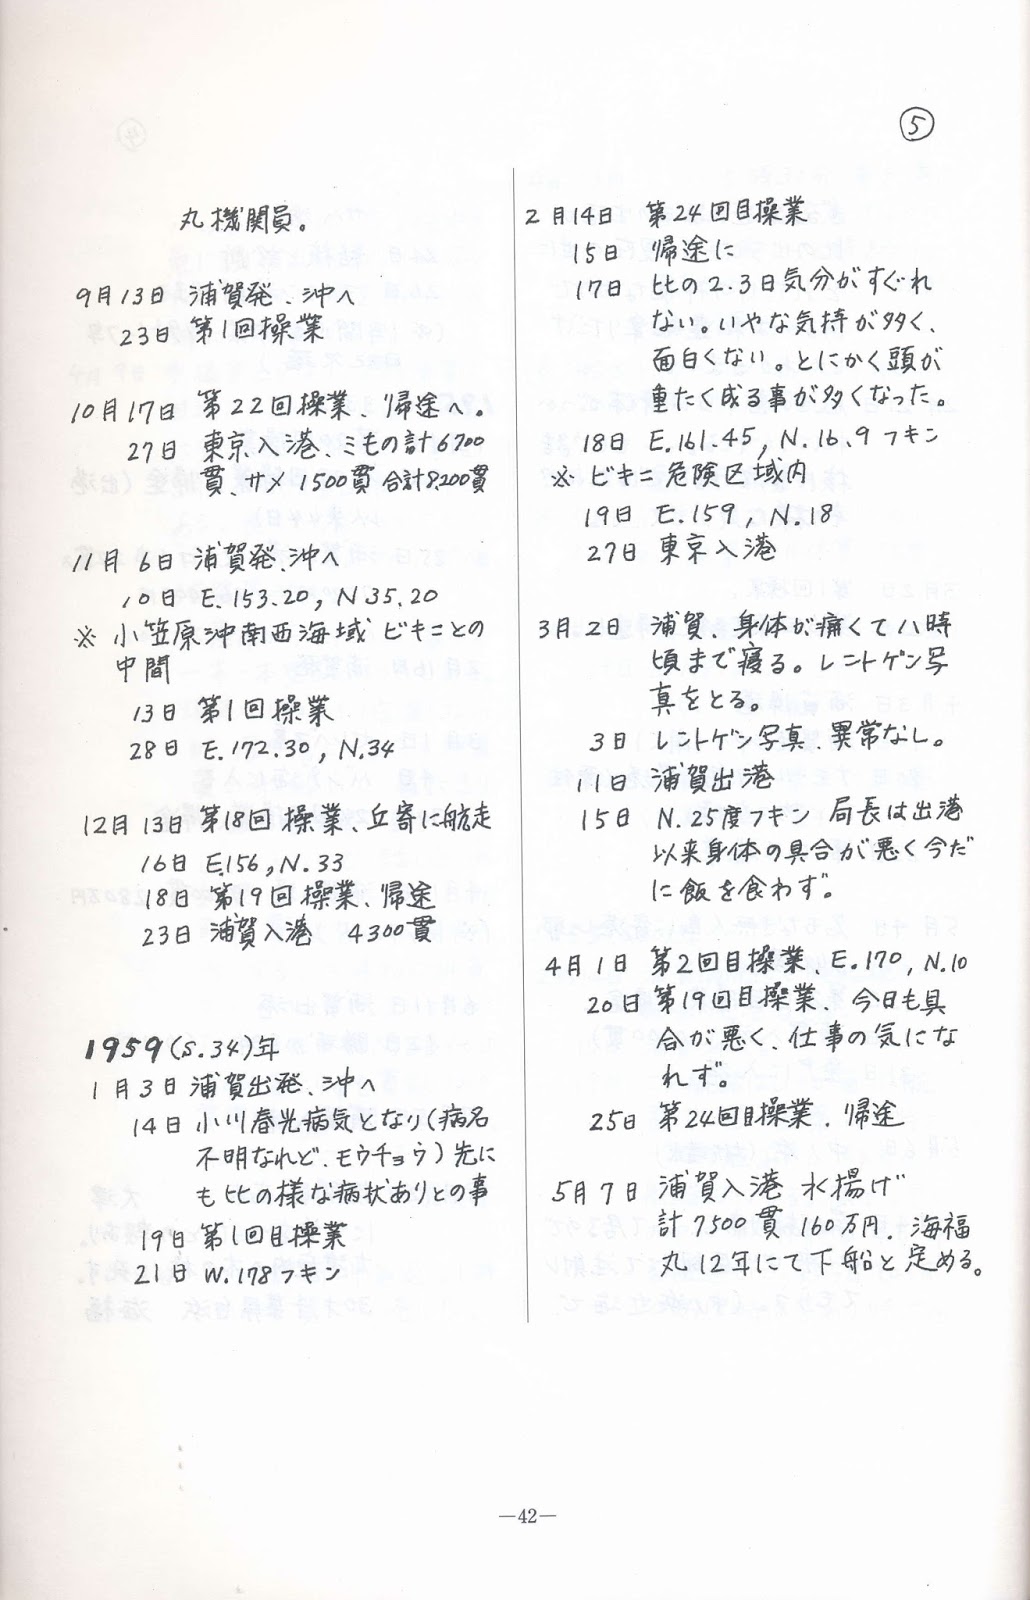 ⑤
丸機関員。
9月13日 浦賀発、沖へ
23日 第1回操業
10月17日 第22回操業、帰途へ。
27日 東京入港、ミもの計6700
貫、サメ1500貫 合計8,200貫
11月6日 浦賀発、沖へ
10日 E.153.20, N35.20
※ 小笠原沖南西海域 ビキニとの
中間
13日 第1回操業
28日 E.172.30, N.34
12月13日 第18回操業、丘寄に航走
16日 E.156, N.33
18日 第19回操業、帰途
23日 浦賀入港 4300貫
1959(S.34)年
1月3日 浦賀出発、沖へ
14日 小川春光病気となり(病名
不明なれど、モウチョウ)先に
も比の様な病状ありとの事
19日 第1回目操業
21日 W.178フキン
2月14日 第24回目操業
15日 帰途に
17日 比の2.3日気分がすぐれ
ない。いやな気持が多く、
面白くない。とにかく頭が
重たく成る事が多くなった。
18日 E.161.45, N.16.9フキン
※ ビキニ危険区域内
19日 E.159, N.18
27日 東京入港
3月2日 浦賀、身体が痛くて八時
頃まで寝る。レントゲン写
真をとる。
3日 レントゲン写真、異常なし。
11日 浦賀出港
15日 N.25度フキン 局長は出港
以来身体の具合が悪く今だ
に飯を食わず。
4月1日 第2回目操業、E.170, N.10
20日 第19回目操業、今日も具
合が悪く、仕事の気にな
れず。
25日 第24回目操業、帰途
5月7日 浦賀入港 水揚げ
計7500貫 160万円、海福
丸12年にて下船と定める。
—42—